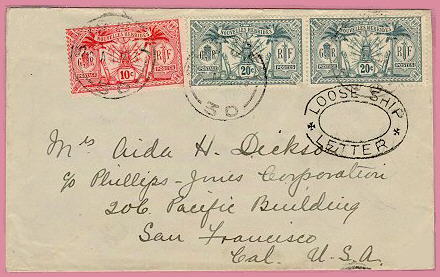 NOUVELLES HEBRIDES
G R R F
POSTAGE POSTES
10c
NOUVELLES HEBRIDES
G R R F
POSTAGE POSTES
20c
NOUVELLES HEBRIDES
G R R F
POSTAGE POSTES
20c
LOOSE SHIP
LETTER
Mrs Aida H. Dickson
c/o Phillips-Jones Corporation
206 Pacific Building
San Francisco
Cal. U.S.A.